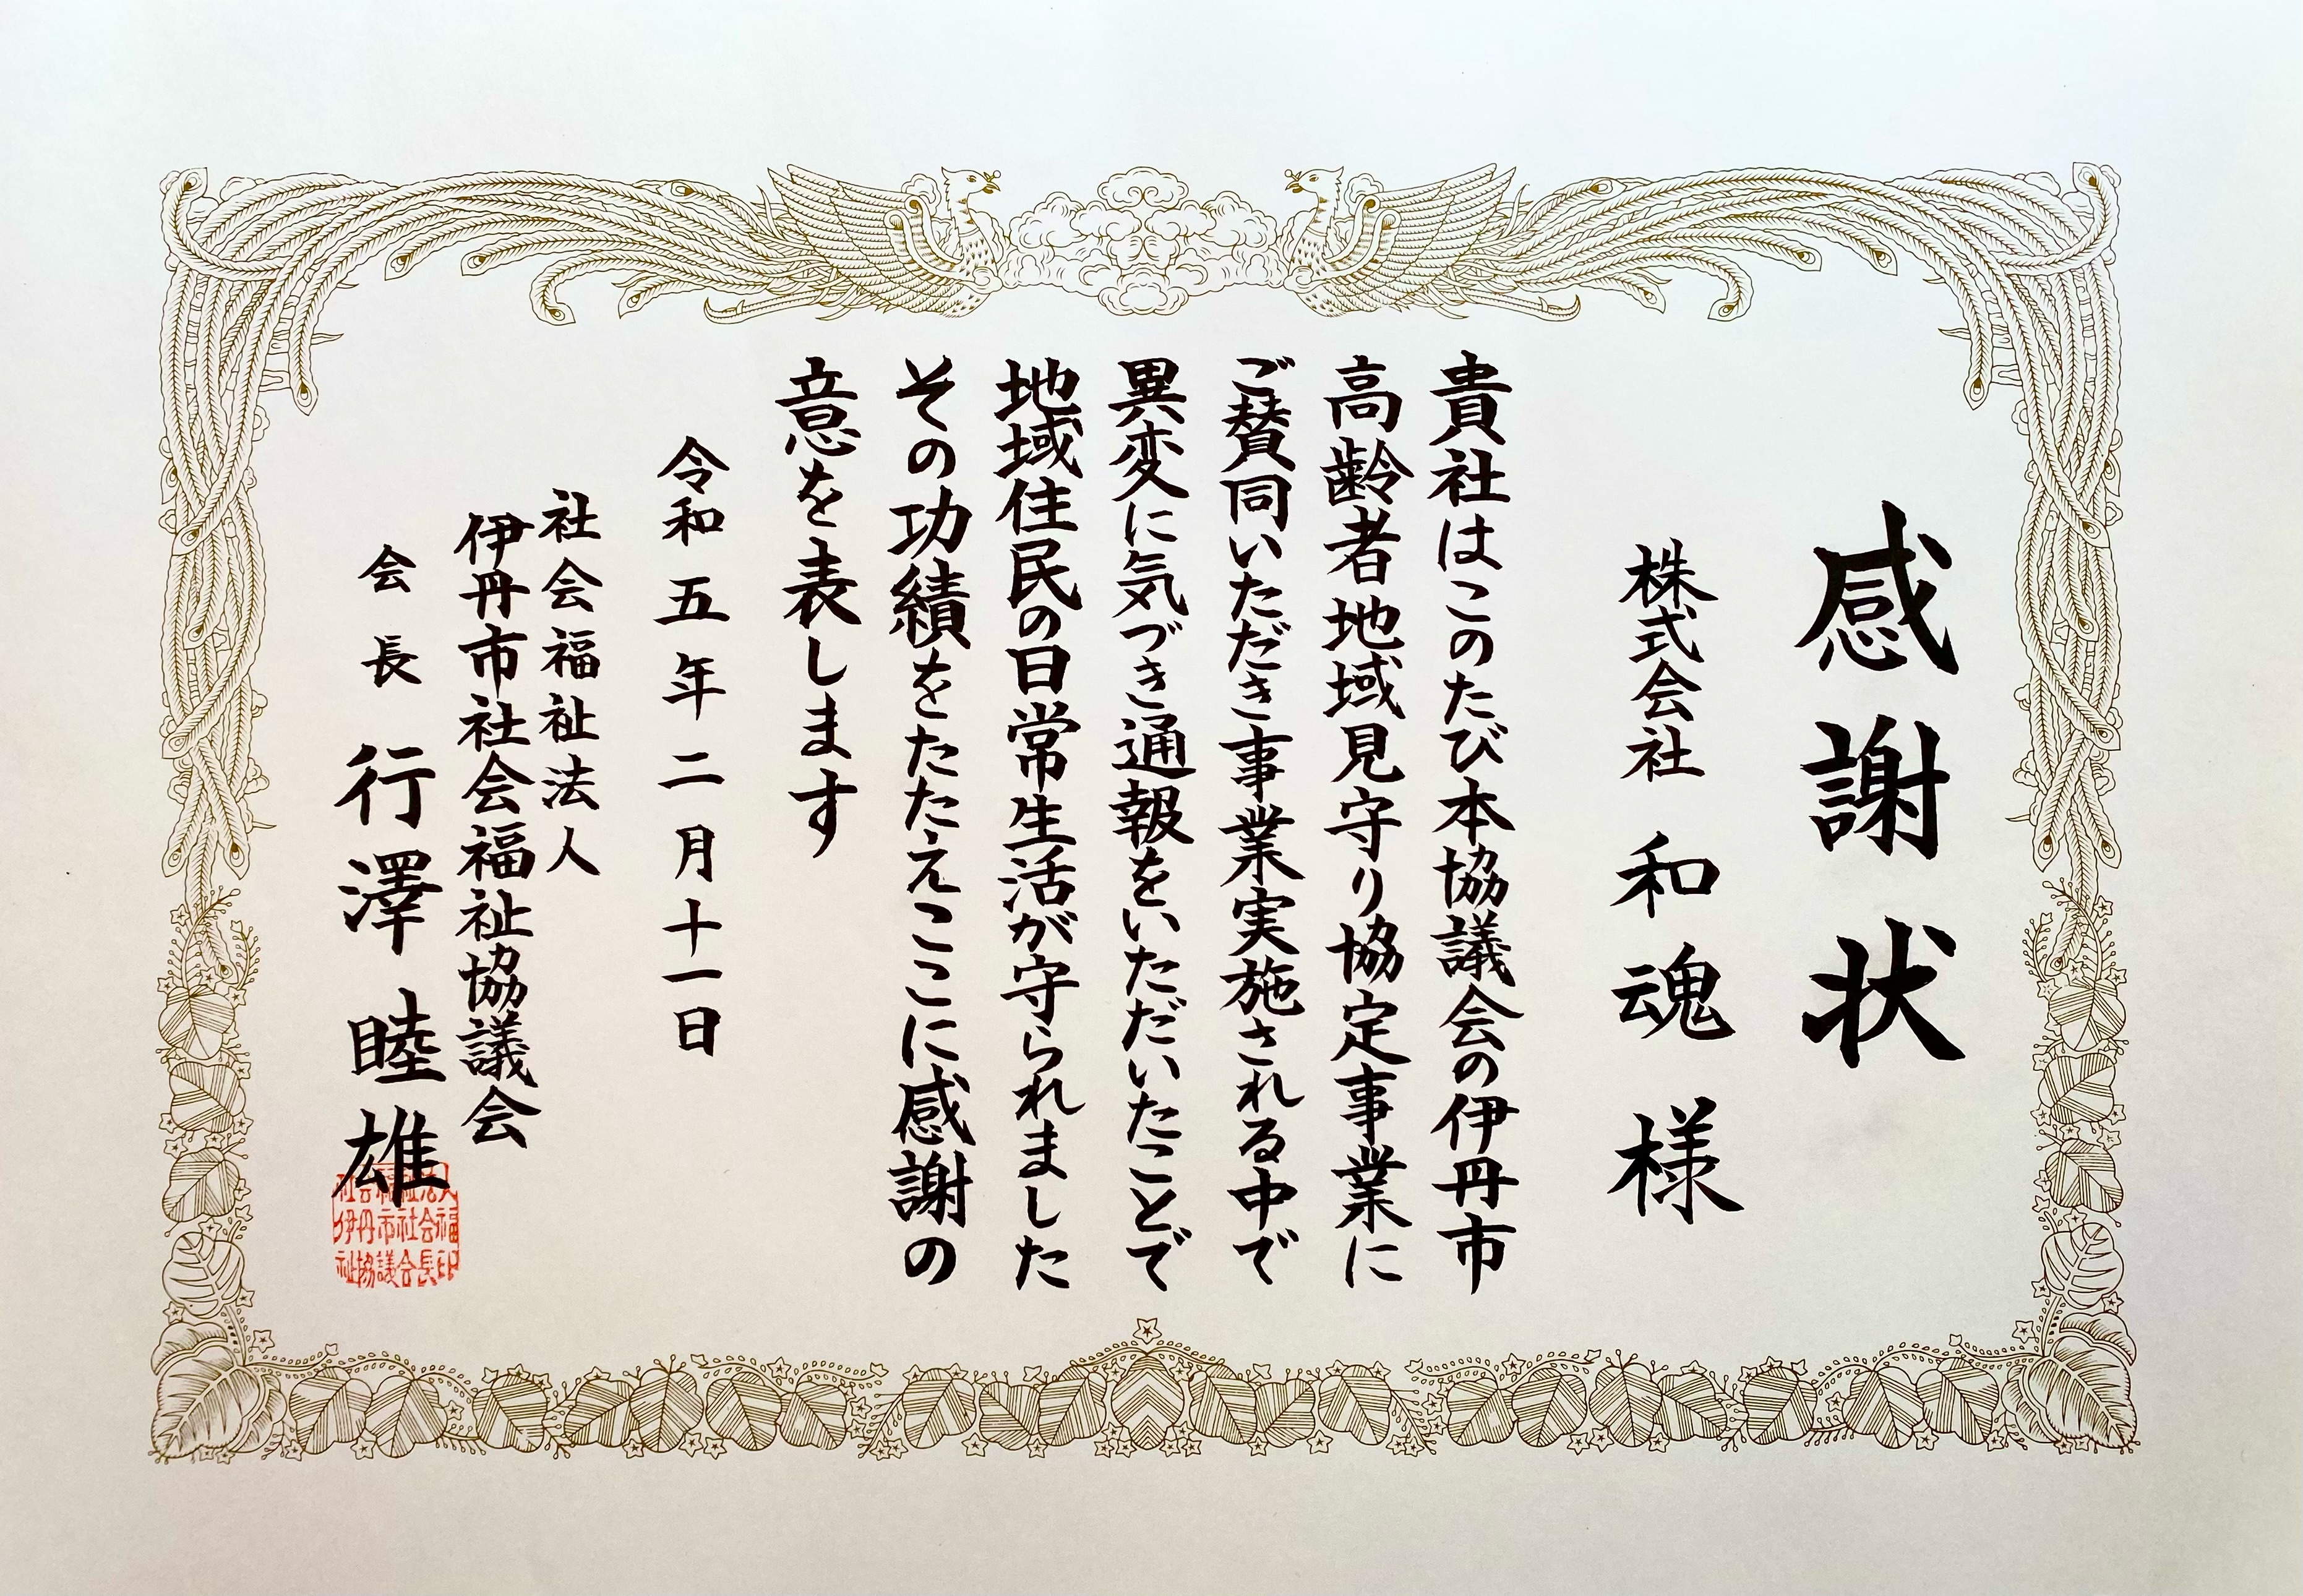 感謝状
株式会社 和魂 様
貴社はこのたび本協議会の伊丹市
高齢者地域見守り協定事業に
ご賛同いただき事業実施される中で
異変に気づき通報をいただいたことで
地域住民の日常生活が守られました
その功績をたたえここに感謝の
意を表します
令和五年二月十一日
社会福祉法人
伊丹市社会福祉協議会
会長 行澤睦雄
社会福祉法人
伊丹市社会福
祉協議会長印